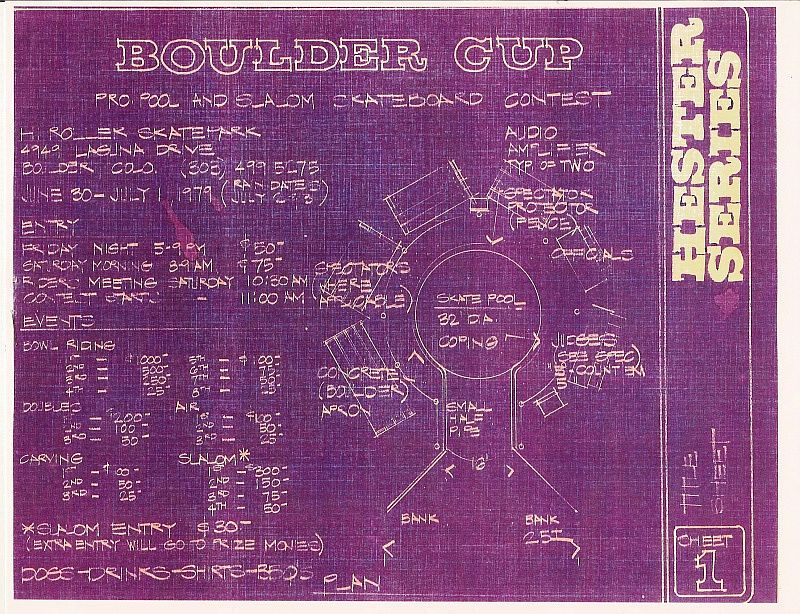 BOULDER CUP
PRO POOL AND SLALOM SKATEBOARD CONTEST
HI ROLLER SKATEPARK
4949 LAGUNA DRIVE
BOULDER COLO. (303) 499 5275
JUNE 30 - JULY 1, 1979 (RAIN DATE IS JULY 2 & 3)
ENTRY
FRIDAY NIGHT 5-9 PM $50-
SATURDAY MORNING 8-9 AM $75-
RIDERS MEETING SATURDAY 10:30 AM
CONTEST STARTS - 11:00 AM
EVENTS
BOWL RIDING
DOUBLES AIR
1ST - $200- 1ST - $100-
2ND - 100- 2ND - 50-
3RD - 50- 3RD - 25-
CARVING SLALOM*
1ST - $100- 1ST - $300-
2ND - 50- 2ND - 150-
3RD - 25- 3RD - 75-
4TH - 50-
*SLALOM ENTRY $30-
(EXTRA ENTRY WILL GO TO PRIZE MONIES)
DOGS-DRINKS-SHIRTS-
AUDIO
AMPLIFIER
TYP. OF TWO
SPECTATOR
PROTECTOR
(FENCE)
OFFICIALS
SPECTATORS
(WHERE
APPLICABLE)
SKATE POOL
32 DIA.
COPING
JUDGES
(SEE SPEC)
COUNT EM
CONCRETE
(BOULDER)
APRON
SMALL
HALF
PIPE
16'
BANK
BANK
PLAN
HESTER
SERIES
TITLE
SHEET
SHEET
1